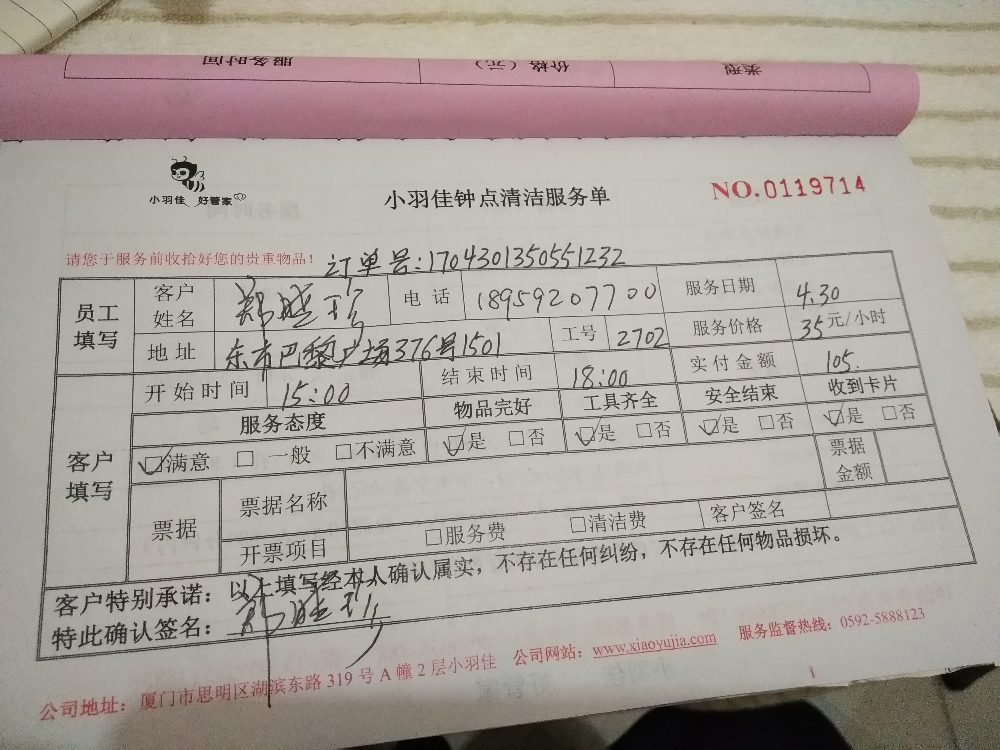 服务时间 价格（元） 类型
小羽佳 好管家
小羽佳钟点清洁服务单
NO.0119714
请您于服务前收拾好您的贵重物品！ 订单号:1704301350551232
员工填写 客户姓名 郑晓珍 电话 18959207700 服务日期 4.30
地址 东市巴黎广场376号1501 工号 2702 服务价格 35元/小时
客户填写 开始时间 15:00 结束时间 18:00 实付金额 105.
服务态度 物品完好 工具齐全 安全结束 收到卡片
☑满意 □一般 □不满意 ☑是 □否 ☑是 □否 ☑是 □否 ☑是 □否
票据 票据名称 票据金额
开票项目 □服务费 □清洁费 客户签名
客户特别承诺：以上填写经本人确认属实，不存在任何纠纷，不存在任何物品损坏。
特此确认签名：郑晓珍
公司地址：厦门市思明区湖滨东路319号A幢2层小羽佳 公司网站：www.xiaoyujia.com 服务监督热线：0592-5888123